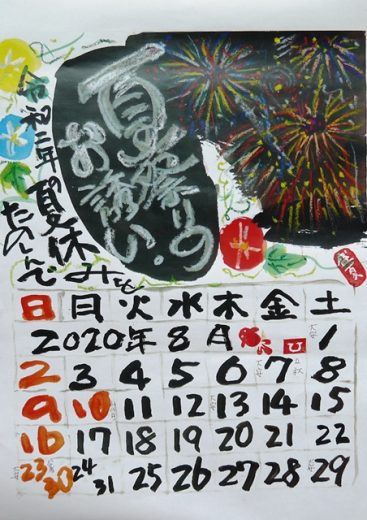 夏祭りの
お誘い
令和二年の夏休みも
たのしんで
日 月 火 水 木 金 土
2020年8月 1
2 3 4 5 6 7 8
9 10 11 12 13 14 15
16 17 18 19 20 21 22
23 30 24 31 25 26 27 28 29